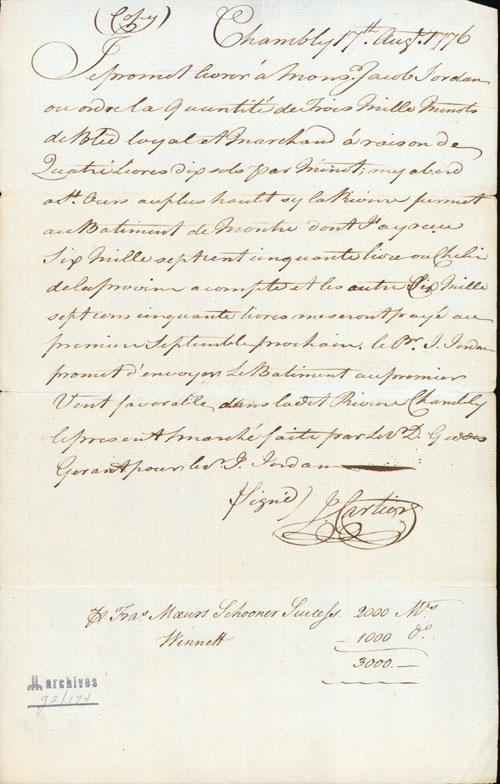 (Copy)
Chambly 17th Augt. 1776
Je promet livrer à Mons. Jacob Jordan
ou ordre la Quantité de Trois Mille Minots
de Bled loyal et Marchand à raison de
Quatre Livres dix sols par Minot, my abord
a St. Ours au plus hault sy la Riviere permet
au Batiment de Montre dont J'ay reçu
Six Mille sept cent cinquante livre ou Chelin
de la provin a compte et les autre Six Mille
sept cens cinquante livres me seront payé au
premier Septembre prochain. le Sr. J. Jordan
promet d'envoyer Le Batiment au premier
Vent favorable dans ladet Riviere Chambly
le present marché faite par le Sr. D. Geddes
Gerant pour le Sr. J. Jordan
(Signé) J. Cartier
Fras. Mœurs Schooner Success. 2000 Mts
Wennett 1000 do.
3000.—
archives
92/174